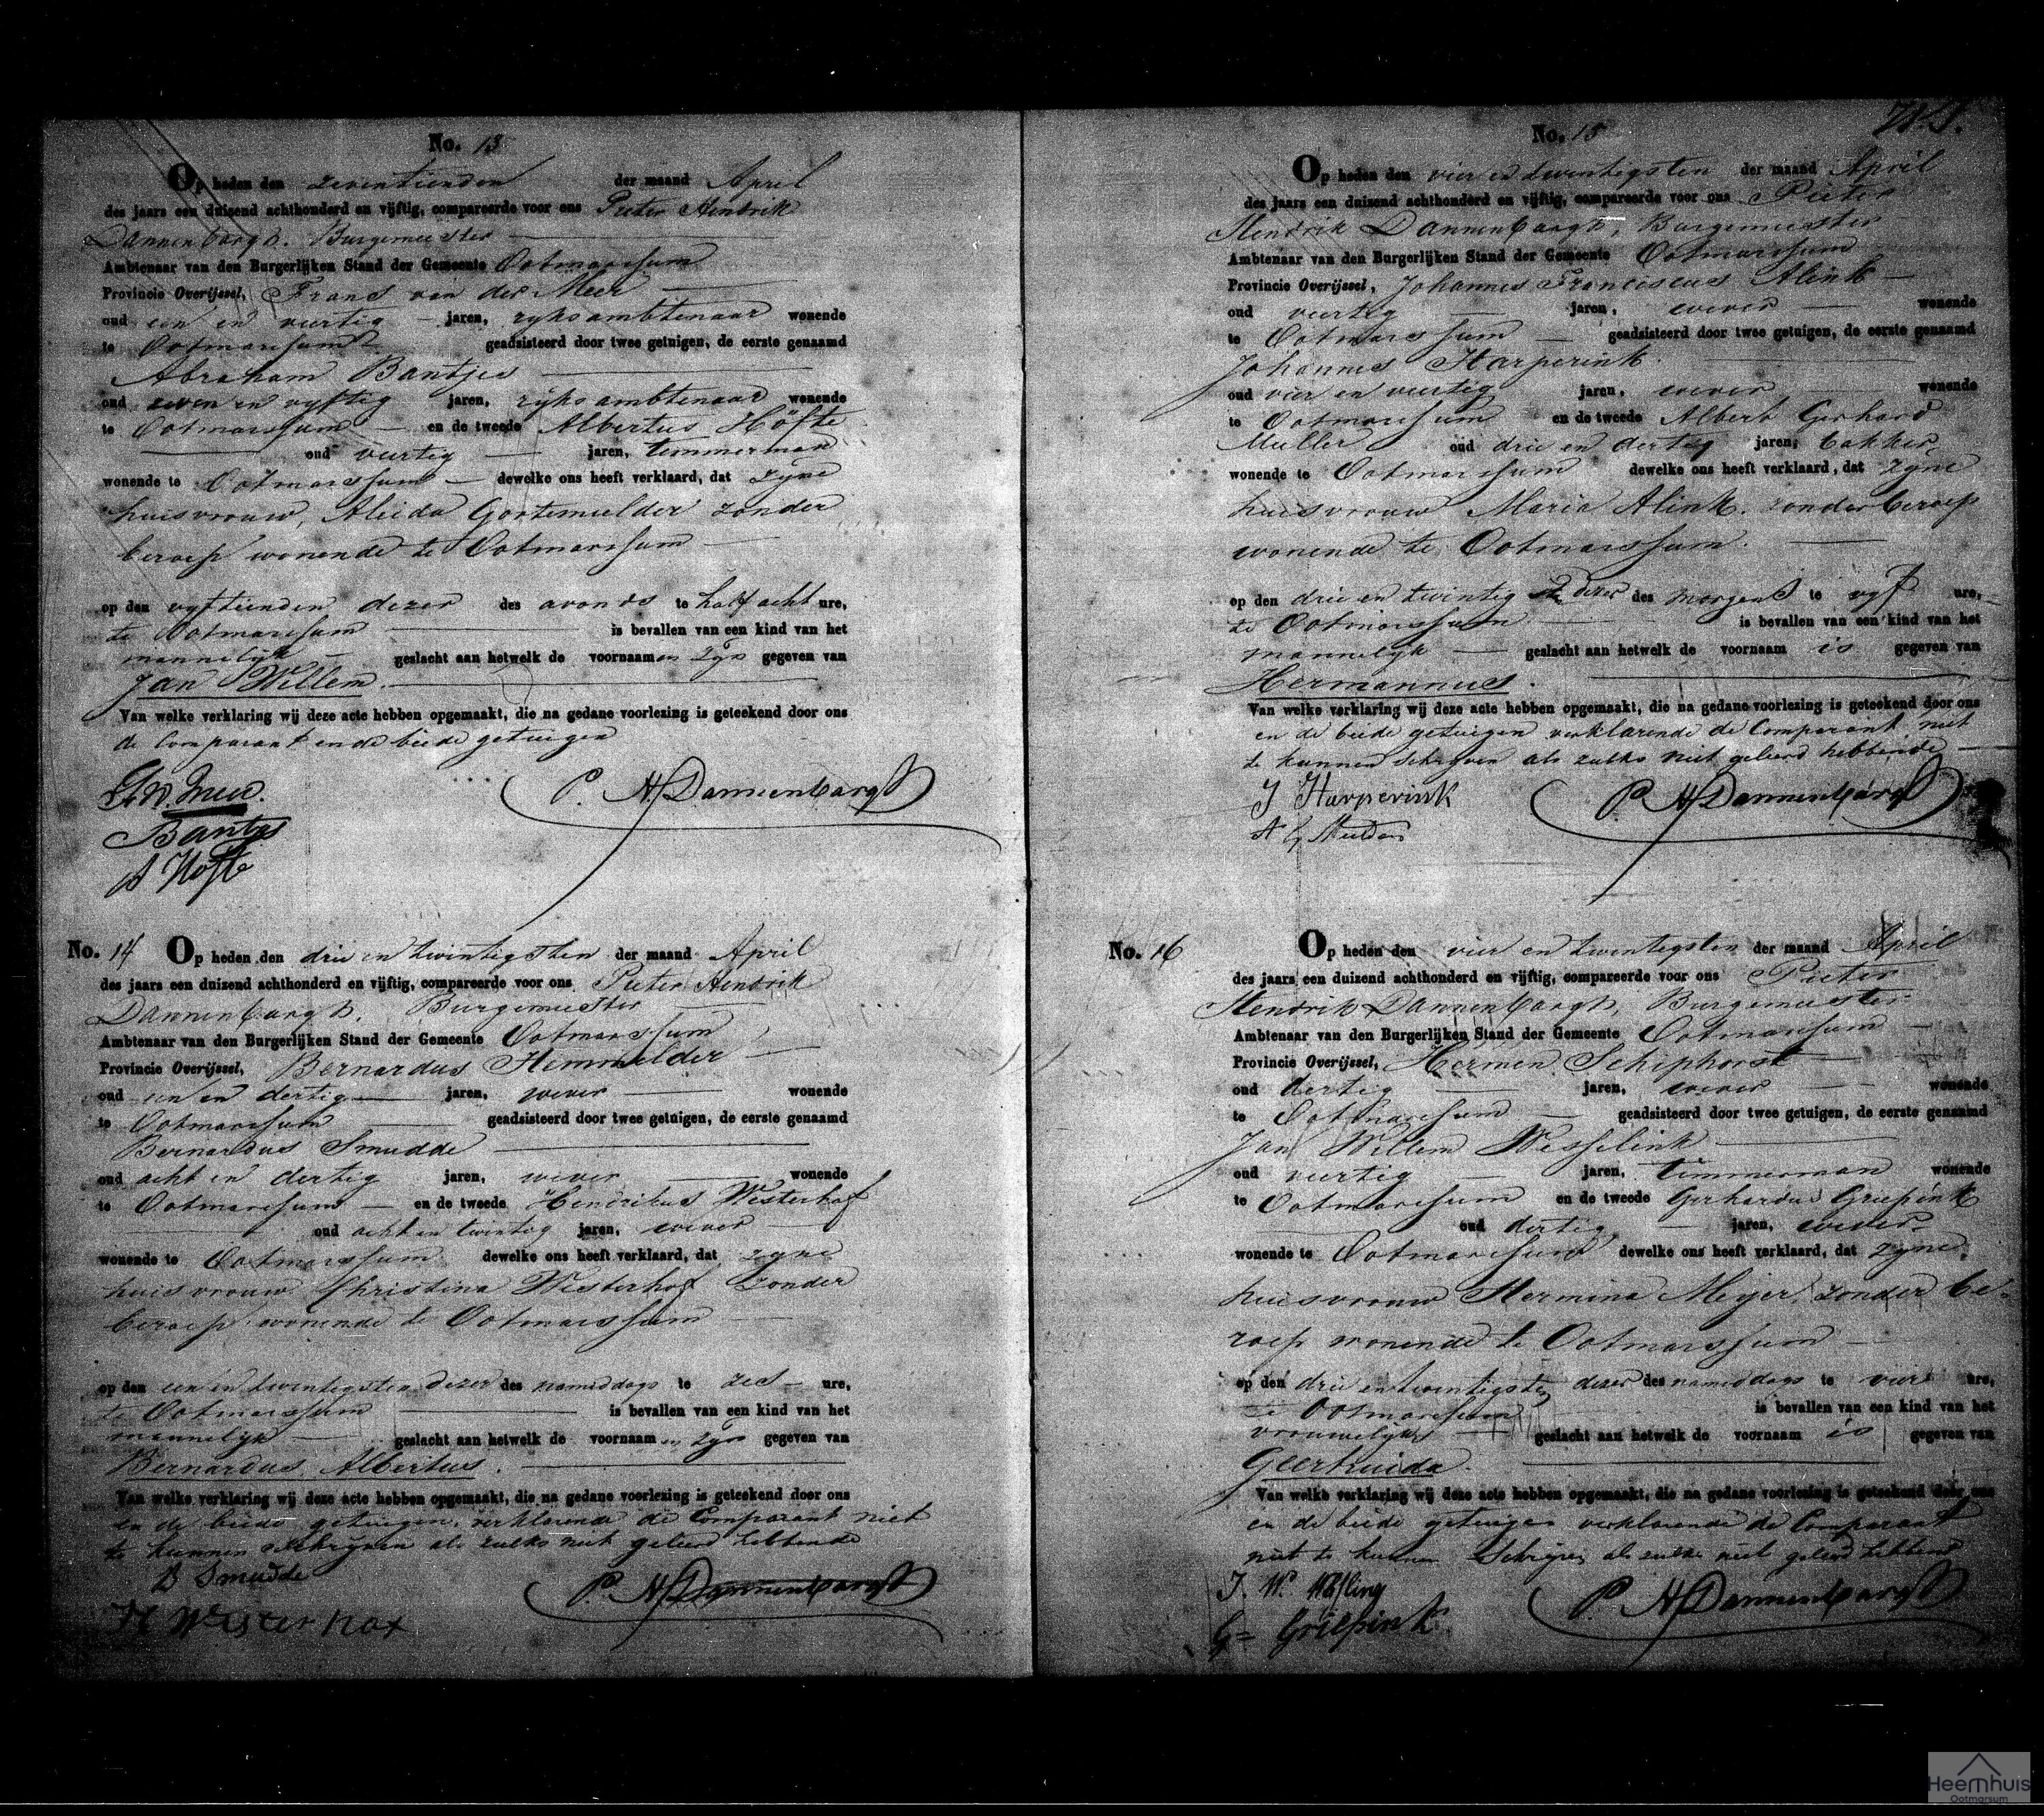 No. 13
Op heden den zeventienden der maand April
des jaars een duizend achthonderd en vijftig, compareerde voor ons Pieter Hendrik
Dannenbargh, Burgemeester
Ambtenaar van den Burgerlijken Stand der Gemeente Ootmarssum
Provincie Overijssel, Frans van der Meer
oud een en veertig jaren, ryksambtenaar wonende
te Ootmarssum geadsisteerd door twee getuigen, de eerste genaamd
Abraham Bantjes
oud zeven en vyftig jaren, ryksambtenaar wonende
te Ootmarssum en de tweede Albertus Höfte
oud veertig jaren, Timmerman
wonende te Ootmarssum dewelke ons heeft verklaard, dat zyne
huisvrouw, Aleida Gortemulder zonder
beroep wonende te Ootmarssum
op den vyftienden dezer des avonds te half acht ure,
te Ootmarssum is bevallen van een kind van het
mannelyk geslacht aan hetwelk de voornaamen zyn gegeven van
Jan Willem.
Van welke verklaring wij deze acte hebben opgemaakt, die na gedane voorlezing is geteekend door ons
de Comparant en de beide getuigen
P. H. Dannenbargh
Bantjes
A Hofte
No. 14 Op heden den drie en twintigsten der maand April
des jaars een duizend achthonderd en vijftig, compareerde voor ons Pieter Hendrik
Dannenbargh, Burgemeester
Ambtenaar van den Burgerlijken Stand der Gemeente Ootmarssum
Provincie Overijssel, Bernardus Hemmelder
oud een en dertig jaren, wever wonende
te Ootmarssum geadsisteerd door twee getuigen, de eerste genaamd
Bernardus Smudde
oud acht en dertig jaren, wever wonende
te Ootmarssum en de tweede Hendrikus Westerhof
oud acht en twintig jaren, wever
wonende te Ootmarssum dewelke ons heeft verklaard, dat zyne
huisvrouw Christina Westerhof zonder
beroep wonende te Ootmarssum
op den een en twintigsten dezer des nameddags te zes ure,
te Ootmarssum is bevallen van een kind van het
mannelyk geslacht aan hetwelk de voornaamen zyn gegeven van
Bernardus Albertus.
Van welke verklaring wij deze acte hebben opgemaakt, die na gedane voorlezing is geteekend door ons
en de beide getuigen, verklarende de Comparant niet
te kunnen schryven als zulks niet geleerd hebbende
B Smudde
P. H. Dannenbargh
H Westerhof
No. 15
Op heden den vier en twintigsten der maand April
des jaars een duizend achthonderd en vijftig, compareerde voor ons Pieter
Hendrik Dannenbargh, Burgemeester
Ambtenaar van den Burgerlijken Stand der Gemeente Ootmarssum
Provincie Overijssel, Johannes Franciscus Alink
oud veertig jaren, wever wonende
te Ootmarssum geadsisteerd door twee getuigen, de eerste genaamd
Johannes Harperink
oud vier en veertig jaren, wever wonende
te Ootmarssum en de tweede Albert Gerhard
Muller oud drie en dertig jaren, bakker
wonende te Ootmarssum dewelke ons heeft verklaard, dat zyne
huisvrouw Maria Alink. zonder beroep
wonende te Ootmarssum.
op den drie en twintig dezer des morgens te vyf ure,
te Ootmarssum is bevallen van een kind van het
mannelyk geslacht aan hetwelk de voornaam is gegeven van
Hermannus.
Van welke verklaring wij deze acte hebben opgemaakt, die na gedane voorlezing is geteekend door ons
en de beide getuigen verklarende de Comparant niet
te kunnen schryven als zulks niet geleerd hebbende
J Harperink
P. H. Dannenbargh
A G
No. 16 Op heden den vier en twintigsten der maand April
des jaars een duizend achthonderd en vijftig, compareerde voor ons Pieter
Hendrik Dannenbargh, Burgemeester
Ambtenaar van den Burgerlijken Stand der Gemeente Ootmarssum
Provincie Overijssel, Hermen Schiphorst
oud dertig jaren, wever wonende
te Ootmarssum geadsisteerd door twee getuigen, de eerste genaamd
Jan Willem Wesselink
oud veertig jaren, Timmerman wonende
te Ootmarssum en de tweede Gerhardus Griepink
oud dertig jaren, wever
wonende te Ootmarssum dewelke ons heeft verklaard, dat zyne
huisvrouw Hermina Meijer, zonder be-
roep wonende te Ootmarssum
op den drie en twintigsten dezer des nameddags te vier ure,
te Ootmarssum is bevallen van een kind van het
vrouwelyk geslacht aan hetwelk de voornaam is gegeven van
Geertruida.
Van welke verklaring wij deze acte hebben opgemaakt, die na gedane voorlezing is geteekend door ons
en de beide getuigen verklarende de Comparant
niet te kunnen Schryven als zulks niet geleerd hebbende
J. W.
P. H. Dannenbargh
G= Griepink
Heemhuis
Ootmarsum